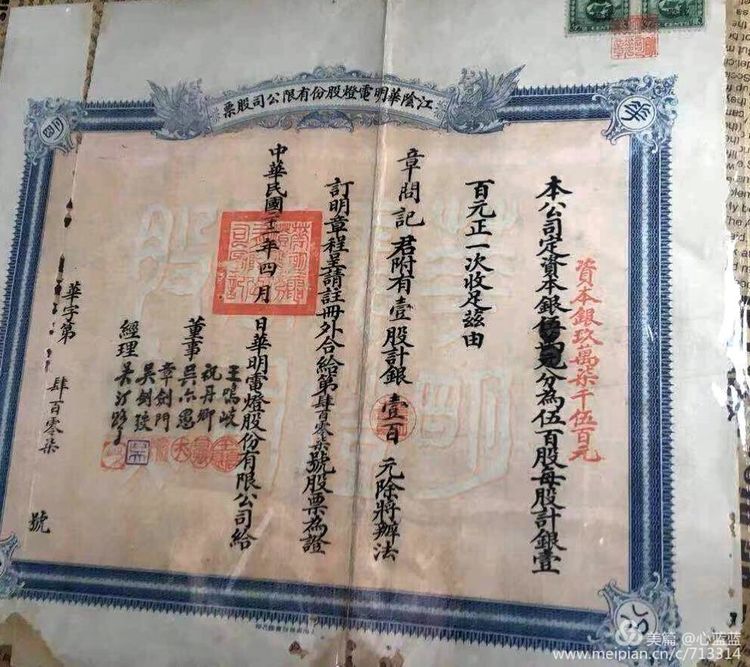 江陰華明電燈股份有限公司股票
資本銀玖萬柒千伍百元
本公司定資本銀分為伍百股每股計銀壹
百元正一次收足茲由
章問記 君附有壹股計銀壹百元除將辦法
訂明章程呈請註冊外合給第肆百零柒號股票為證
中華民國年四月 日華明電燈股份有限公司給
董事
祝丹卿
章劍門
經理
吳汀鷺
華字第 肆百零柒 號
美篇 @心蓝蓝
www.meipian.cn/c/713314